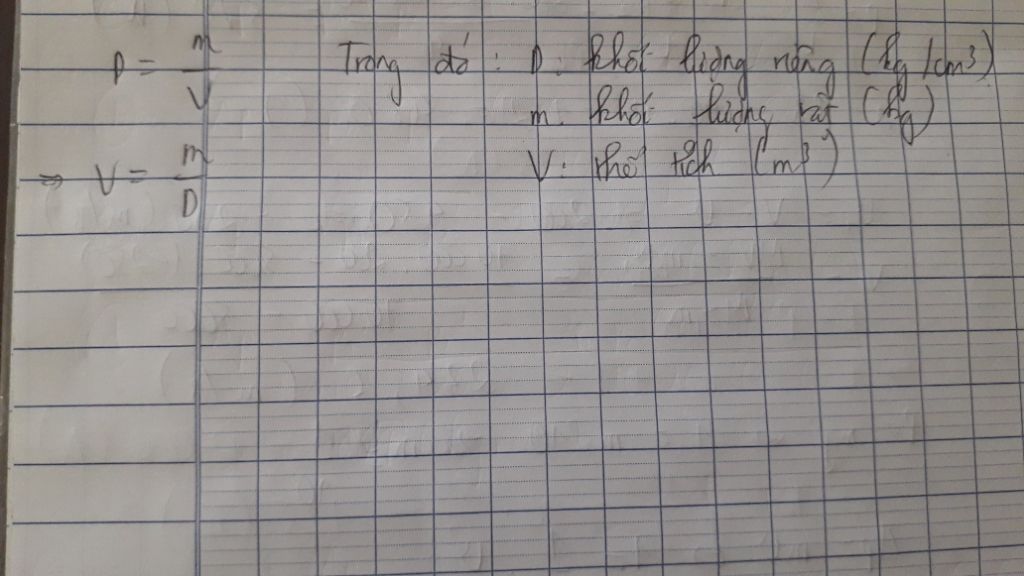 D = m/V Trong đó: D: khối lượng riêng (kg/cm³)
m: khối lượng vật (kg)
=> V = m/D V: thể tích (m³)